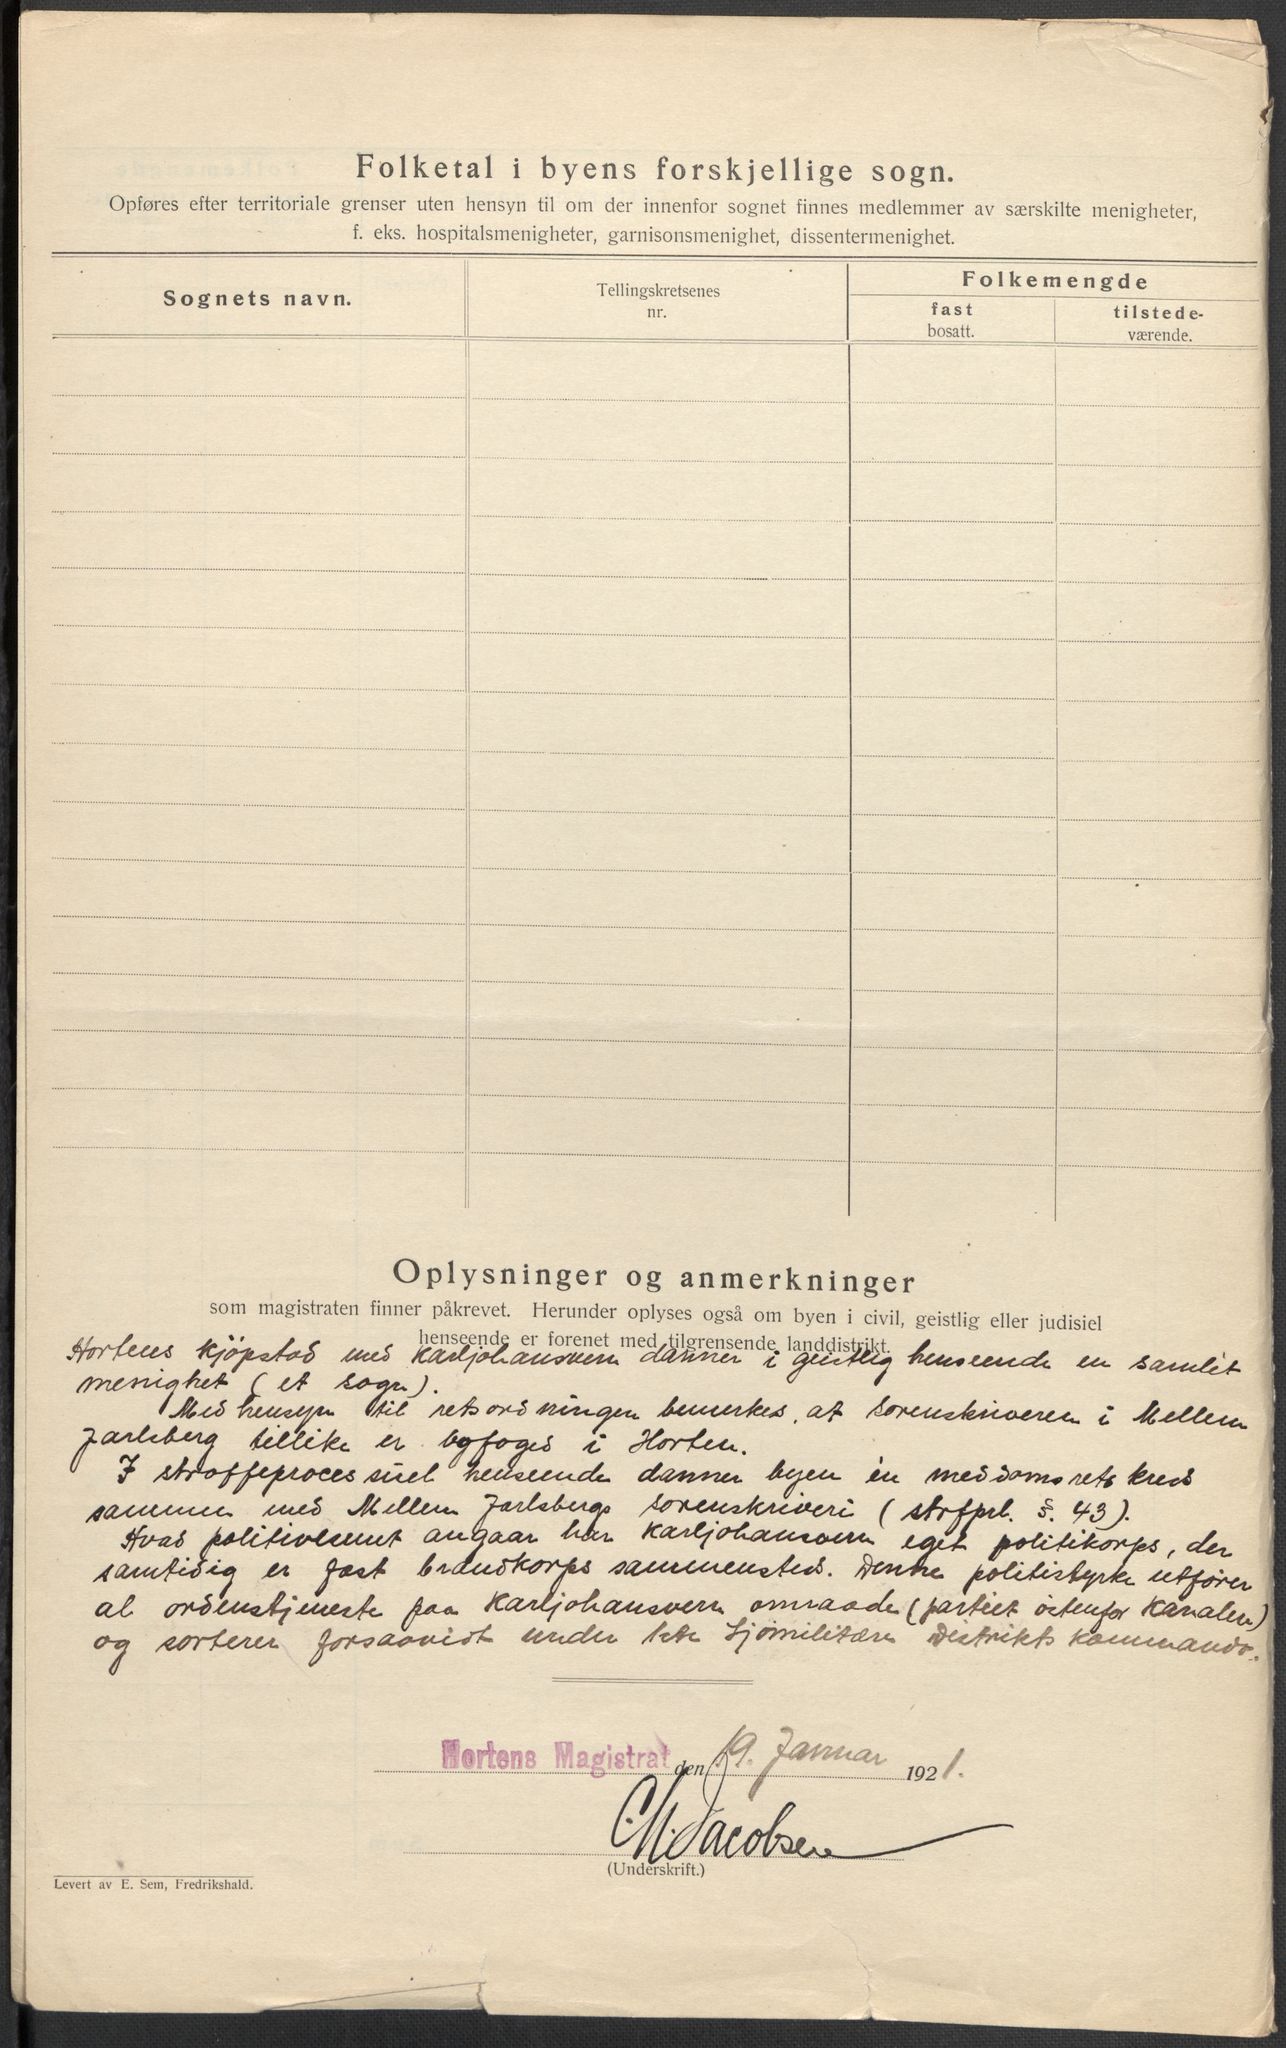 Folketal i byens forskjellige sogn.
Opføres efter territoriale grenser uten hensyn til om der innenfor sognet finnes medlemmer av særskilte menigheter,
f. eks. hospitalsmenigheter, garnisonsmenighet, dissentermenighet.
Sognets navn.
Tellingskretsenes
nr.
Folkemengde
fast
bosatt.
tilstede-
værende.
Oplysninger og anmerkninger
som magistraten finner påkrevet. Herunder oplyses også om byen i civil, geistlig eller judisiel
henseende er forenet med tilgrensende landdistrikt.
Hortens kjøpstad med Karljohansvern danner i geistlig henseende en samlet
menighet (et sogn).
Med hensyn til retsordningen bemerkes, at sorenskriveren i Mellem
Jarlsberg tillike er byfoged i Horten.
I straffeprocessuel henseende danner byen én meddomsretskreds
sammen med Mellem Jarlsbergs sorenskriveri (strfprl. §. 43).
Hvad politivesenet angaar har Karljohansvern eget politikorps, der
samtidig er fast brandkorps sammesteds. Denne politistyrke utfører
al ordenstjeneste paa Karljohansvern omraade (partiet østenfor Kanalen)
og sorterer forsaavidt under 1ste Sjømilitære Distrikts Kommando.
Hortens Magistrat den 19. Januar 1921.
C.M. Jacobsen
(Underskrift.)
Levert av E. Sem, Fredrikshald.